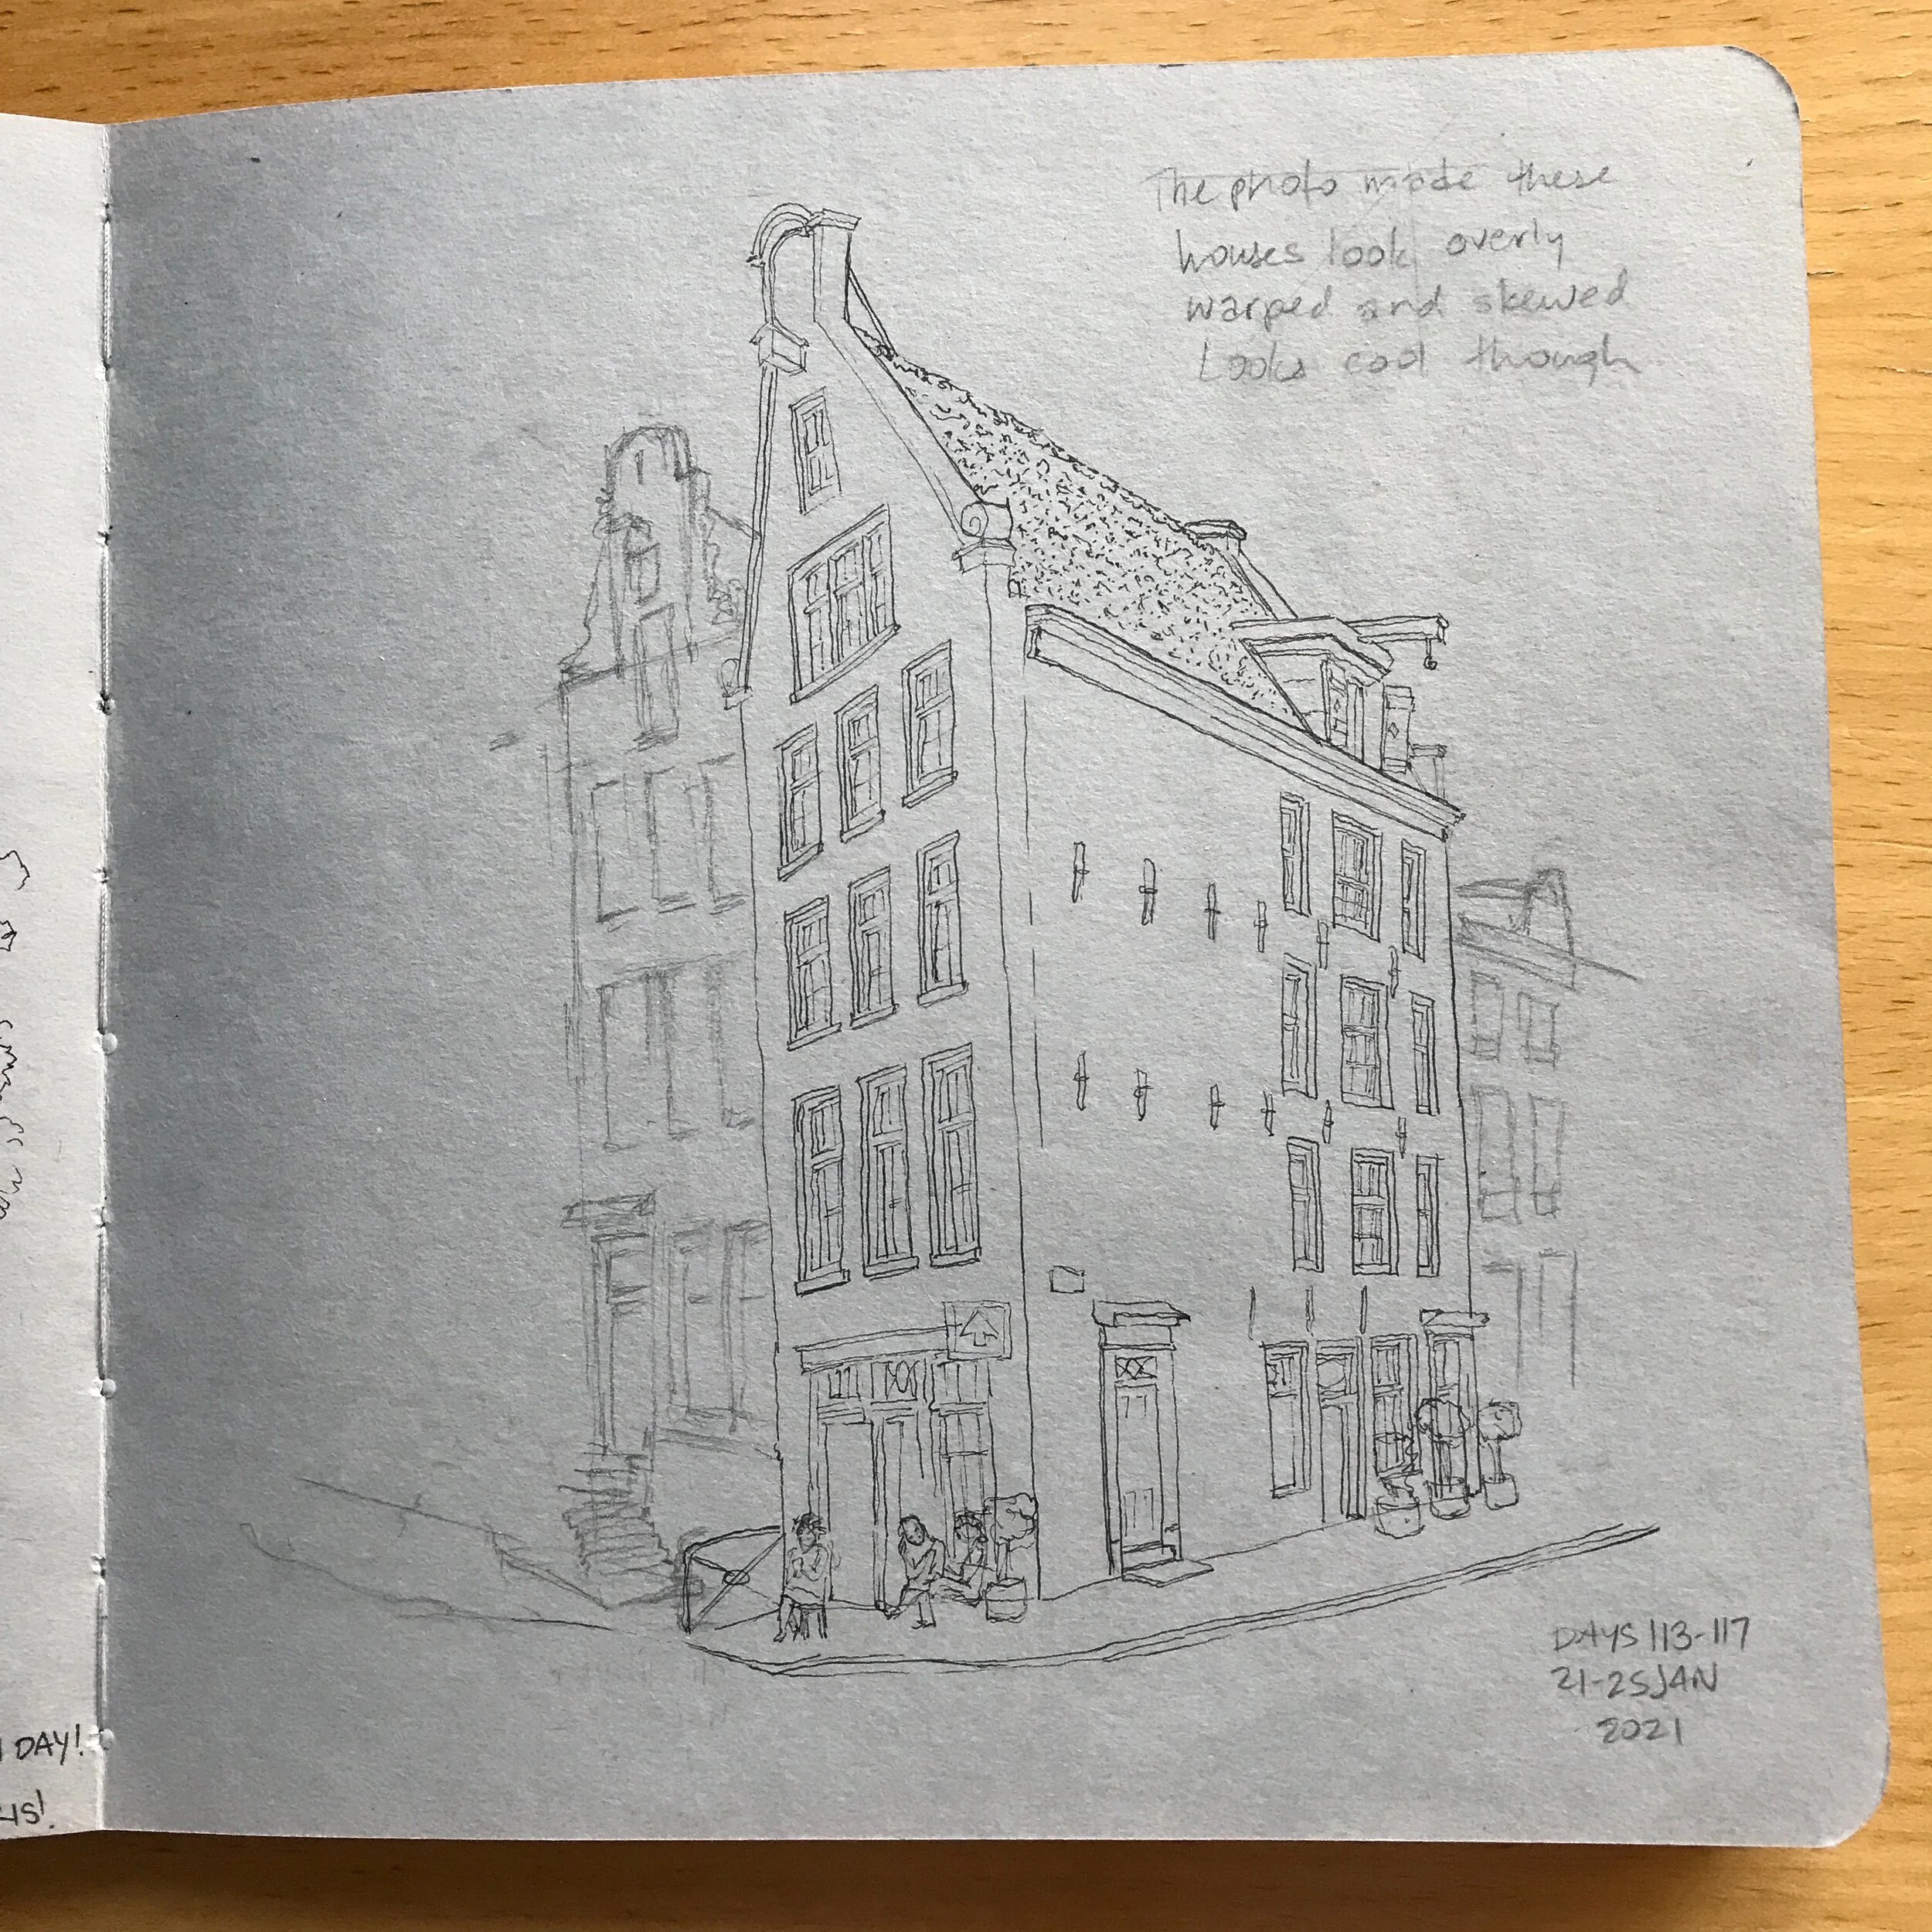 The photo made these
houses look overly
warped and skewed
Looks cool though
DAYS 113-117
21-25 JAN
2021
DAY!